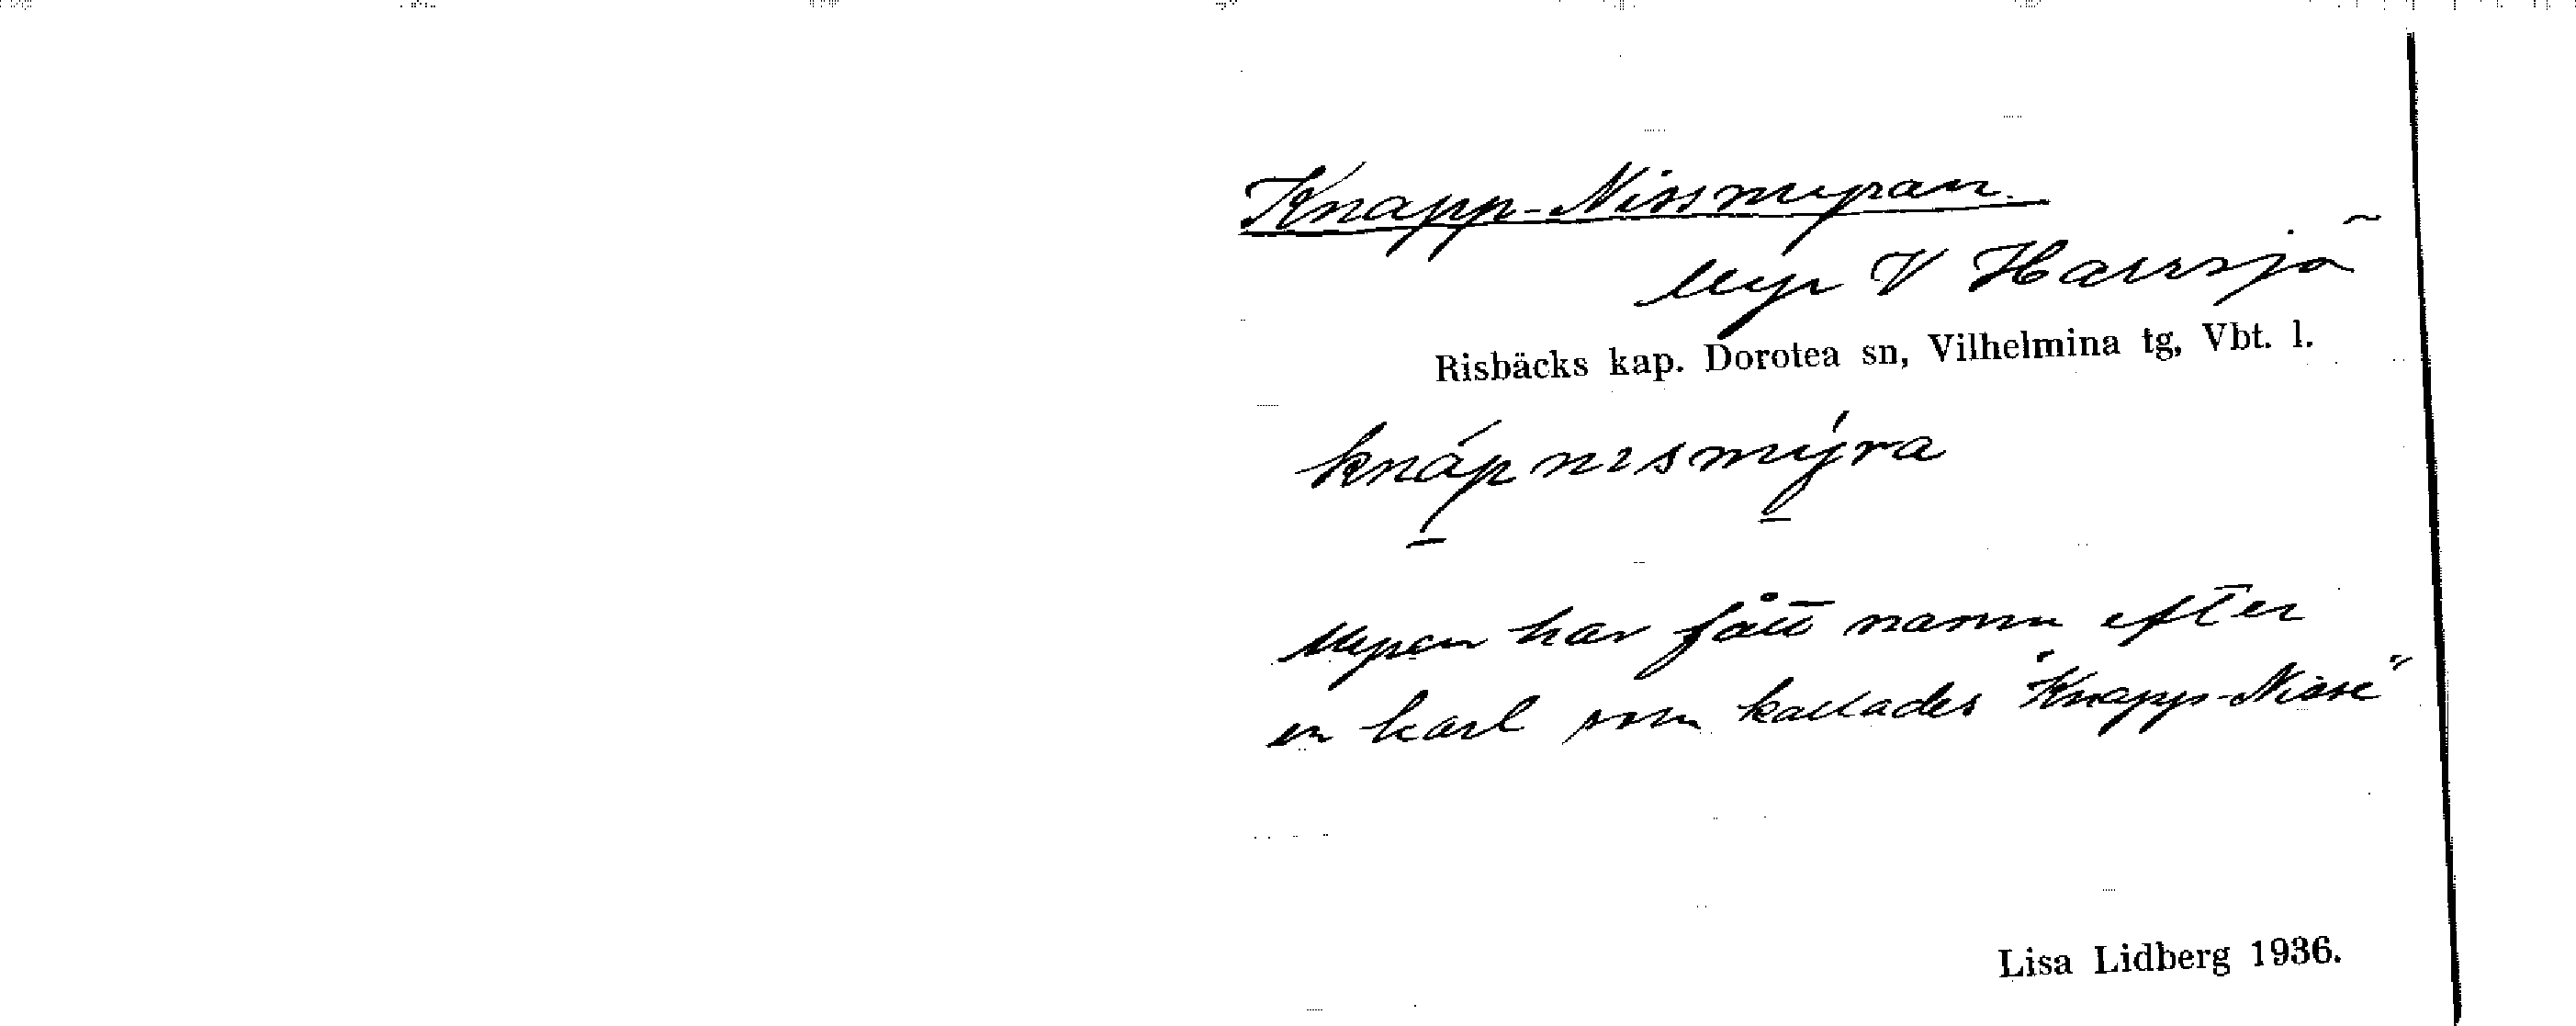 Knapp-Nissmyran.
Myr V Harrsjö
Risbäcks kap. Dorotea sn, Vilhelmina tg, Vbt. l.
knápnɪsmýra
Myren har fått namn efter
en karl som kallades "Knapp-Nisse"
Lisa Lidberg 1936.